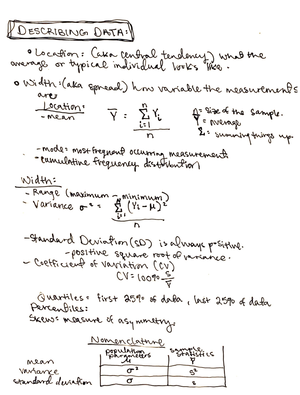 DESCRIBING DATA:
• Location: (aka central tendency) what the
average or typical individual looks like.
• Width: (aka spread) how variable the measurements
are
Location:
- mean
Ȳ = Σ Yᵢ / n
n = size of the sample.
Ȳ = average
Σ = summing things up.
- mode: most frequent occurring measurement
- cumulative frequency distribution
Width:
- Range (maximum - minimum)
- Variance σ² = Σ (Yᵢ - μ)² / n
- Standard Deviation (SD) is always positive.
- positive square root of variance.
- Coefficient of variation (CV)
CV = 100% s/Ȳ
Quartiles = first 25% of data, last 25% of data
Percentiles:
Skew = measure of asymmetry.
Nomenclature
population parameters sample statistics
mean μ Ȳ
variance σ² s²
standard deviation σ s